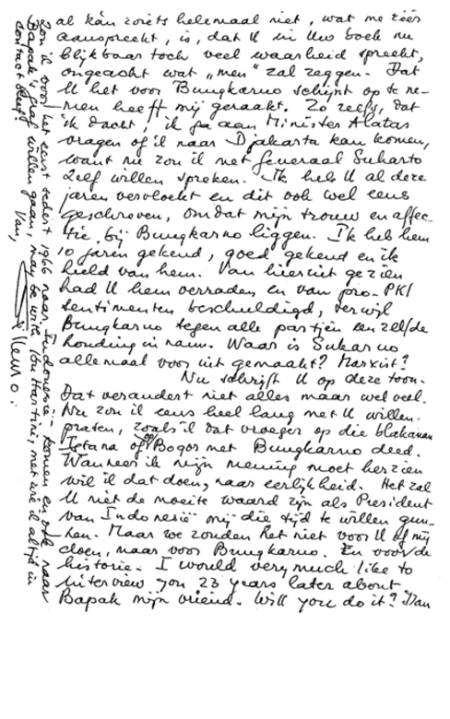 al kán zoiets helemaal niet, wat me zéér
aanspreekt, is, dat U in Uw boek nu
blijkbaar toch veel waarheid spreekt,
ongeacht wat „men" zal zeggen. Dat
U het voor Bungkarno schijnt op te ne-
men heeft mij geraakt. Zo zeefs, dat
ik dacht, ik ga aan Minister Alatas
vragen of ik naar Djakarta kan komen,
want nu zou ik met Generaal Suharto
zelf willen spreken. Ik heb U al deze
jaren vervloekt en dit ook wel eens
geschreven, omdat mijn trouw en affec-
tie bij Bungkarno liggen. Ik heb hem
10 jaren gekend, goed gekend en ik
hield van hem. Van hieruit gezien
had U hem verraden en van pro-PKI
sentimenten beschuldigd, terwijl
Bungkarno tegen alle partijen een zelfde
houding in nam. Waar is Sukarno
allemaal voor uit gemaakt? Marxist?
Nu schrijft U op deze toon.
Dat verandert niet alles maar wel veel.
Nu zou ik eens heel lang met U willen
praten, zoals ik dat vroeger op die blakanan
Istana of Bogor met Bungkarno deed.
Wanneer ik mijn mening moet herzien
wil ik dat doen, naar eerlijkheid. Het zal
U niet de moeite waard zijn als President
van Indonesië mij die tijd te willen gun-
nen. Maar we zouden het niet voor U of mij
doen, maar voor Bungkarno. En voor de
historie. I would very much like to
interview you 23 years later about
Bapak mijn vriend. Will you do it? Dan
zou ik voor het eerst sedert 1966 naar Indonesië komen en ook naar
Bapak's graf willen gaan, may be with Ibu Hartini, met wie ik altijd in
contact bleef.
Van,